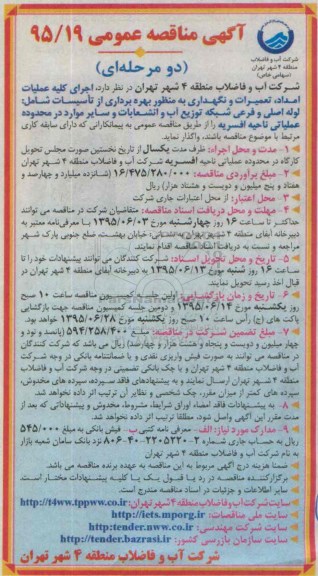 آگهی مناقصه عمومی ۹۵/۱۹
(دو مرحله‌ای)
شرکت آب و فاضلاب
منطقه ۴ شهر تهران
(سهامی خاص)
شرکت آب و فاضلاب منطقه ۴ شهر تهران در نظر دارد، اجرای کلیه عملیات
امداد، تعمیرات و نگهداری به منظور بهره برداری از تأسیسات شامل:
لوله اصلی و فرعی شبکه توزیع آب و انشعابات و سایر موارد در محدوده
عملیاتی ناحیه افسریه را از طریق مناقصه عمومی به پیمانکارانی که دارای سابقه کاری
مرتبط با موضوع مناقصه باشند، واگذار نماید.
۱- مدت و محل اجراء: ظرف مدت یکسال از تاریخ نخستین صورت مجلس تحویل
کارگاه در محدوده عملیاتی ناحیه افسریه شرکت آب و فاضلاب منطقه ۴ شهر تهران
۲- مبلغ برآوردی مناقصه: ۱۶/۴۷۵/۲۸۰/۰۰۰ (شانزده میلیارد و چهارصد و
هفتاد و پنج میلیون و دویست و هشتاد هزار) ریال
۳- محل اعتبار: از محل اعتبارات جاری شرکت
۴- مهلت و محل دریافت اسناد مناقصه: متقاضیان شرکت در مناقصه می توانند
حداکثر تا ساعت ۱۶ روز چهارشنبه مورخ ۱۳۹۵/۰۶/۰۳ با معرفی نامه معتبر به
دبیرخانه آبفای منطقه ۴ شهر تهران به نشانی: خیابان بهشت، ضلع جنوبی پارک شهر
مراجعه و نسبت به دریافت اسناد مناقصه اقدام نمایند.
۵- تاریخ و محل تحویل اسناد: شرکت کنندگان می توانند پیشنهادات خود را تا
ساعت ۱۶ روز شنبه مورخ ۱۳۹۵/۰۶/۱۳ به دبیرخانه آبفای منطقه ۴ شهر تهران در
قبال اخذ رسید تحویل نمایند.
۶- تاریخ و زمان بازگشایی: اولین جلسه کمیسیون مناقصه ساعت ۱۰ صبح
روز یکشنبه مورخ ۱۳۹۵/۰۶/۱۴ و دومین جلسه کمیسیون مناقصه جهت بازگشایی
پاکت های (ج) رأس ساعت ۱۰ صبح روز یکشنبه مورخ ۱۳۹۵/۰۶/۲۸ خواهد بود.
۷- مبلغ تضمین شرکت در مناقصه: مبلغ ۵۹۴/۲۵۸/۴۰۰ (پانصد و نود و
چهار میلیون و دویست و پنجاه و هشت هزار و چهارصد) ریال می باشد که شرکت کنندگان
در مناقصه می توانند به صورت فیش واریزی نقدی و یا ضمانتنامه بانکی در وجه شرکت
آب و فاضلاب منطقه ۴ تهران و یا چک بانکی تضمینی در وجه شرکت آب و فاضلاب
منطقه ۴ تهران ارسال نمایند و به پیشنهادهای فاقد سپرده، سپرده های مخدوش،
سپرده های کمتر از میزان مقرر، چک شخصی و نظایر آن ترتیب اثر داده نخواهد شد.
۸- به پیشنهادات فاقد امضاء اوراق شرایط، مشروط، مخدوش و پیشنهاداتی که بعد از
مدت مقرر این آگهی واصل شود، مطلقا ترتیب اثر داده نخواهد شد.
۹- مدارک مورد نیاز: الف- معرفی نامه کتبی ب- فیش بانکی به مبلغ ۵۴۵/۰۰۰
ریال به حساب جاری شماره ۲-۲۲۰۵۲۲۰-۴۰-۸۰۶ نزد بانک سامان شعبه بازار
به نام شرکت آب و فاضلاب منطقه ۴ شهر تهران
ضمنا هزینه درج آگهی مربوط به این مناقصه به عهده برنده مناقصه می باشد.
برگزارکننده مناقصه در رد یا قبول یک یا کلیه پیشنهادات مختار است.
سایر اطلاعات و جزئیات در اسناد مناقصه مندرج است.
سایت شرکت آب و فاضلاب منطقه ۴ شهر تهران: http://t4ww.tppww.co.ir
سایت ملی مناقصات: http://iets.mporg.ir
سایت شرکت مهندسی: http:tender.nww.co.ir
سایت سازمان بازرسی کشور: http://tender.bazrasi.ir
شرکت آب و فاضلاب منطقه ۴ شهر تهران